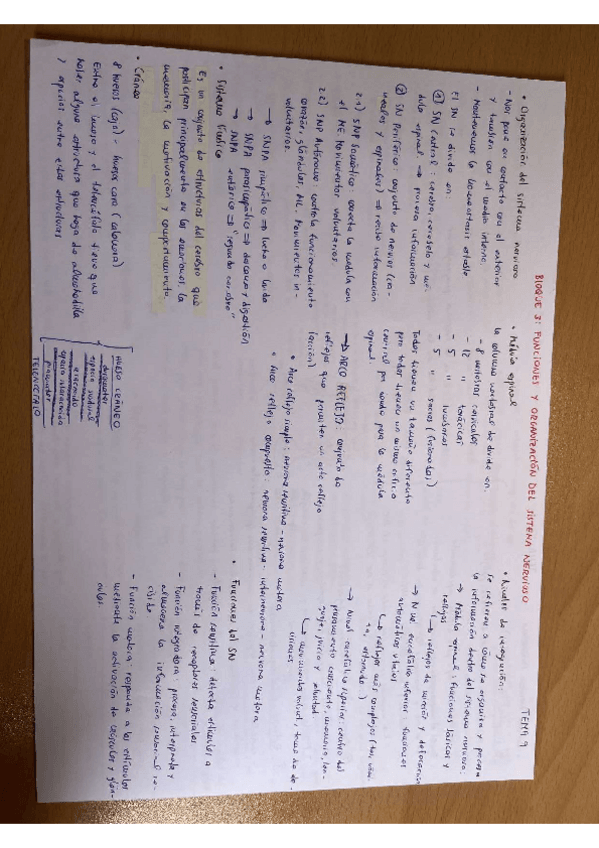 TEMA 9
BLOQUE 3: FUNCIONES Y ORGANIZACIÓN DEL SISTEMA NERVIOSO
• Organización del sistema nervioso
- Nos pone en contacto con el exterior
y también con el medio interno.
- Mantenemos la homeostasis estable
El SN se divide en
① SN Central: cerebro, cerebelo y mé-
dula espinal → procesa información
② SN Periférico: conjunto de nervios (cra-
neales y espinales) → recibe información
2.1) SNP Somático: conecta la médula con
el ME. Movimientos voluntarios.
2.2) SNP Autónomo: controla funcionamiento
corazón, glándulas, etc. Movimientos in-
voluntarios.
→ SNPA simpático → lucha o huida
→ SNPA parasimpático → descanso y digestión
→ SNPA entérico → "segundo cerebro"
• Sistema límbico
Es un conjunto de estructuras del cerebro que
participan principalmente en las emociones, la
memoria, la motivación y comportamiento.
• Cráneo
8 huesos (caja) - huesos cara (calavera)
Entre el hueso y el telencéfalo tiene que
haber alguna estructura que haga de almohadilla
y espacios entre estas estructuras
• Médula espinal
la columna vertebral se divide en:
- 8 vértebras cervicales
- 12 " torácicas
- 5 " lumbares
- 5 " sacras (fusionadas)
Todas tienen un tamaño diferente
pero todas tienen un mismo orificio
central por donde pasa la médula
espinal.
→ ARCO REFLEJO: conjunto de
reflejos que permiten un acto reflejo
(acción)
• Arco reflejo simple: neurona sensitiva - neurona motora
• Arco reflejo compuesto: neurona sensitiva - interneurona - neurona motora
HUESO CRÁNEO
duramater
espacio subdural
aracnoides
espacio subaracnoideo
piamadre
TELENCÉFALO
• Niveles de integración:
se refieren a cómo se organiza y procesa
la información dentro del sistema nervioso:
→ Médula espinal: funciones básicas y
reflejas
↳ reflejos de micción y defecación
→ Nivel encefálico inferior: funciones
automáticas vitales
↳ reflejos más complejos (
→ Nivel encefálico superior: centro del
pensamiento consciente, memoria, len-
guaje, juicio y voluntad
↳ movimientos volunt., toma de de-
cisiones
• Funciones del SN
- Función sensitiva: detecta estímulos a
través de receptores sensoriales
- Función integradora: procesa, interpreta y
almacena la información sensorial re-
cibida
- Función motora: responde a los estímulos
mediante la activación de músculos y glán-
dulas.